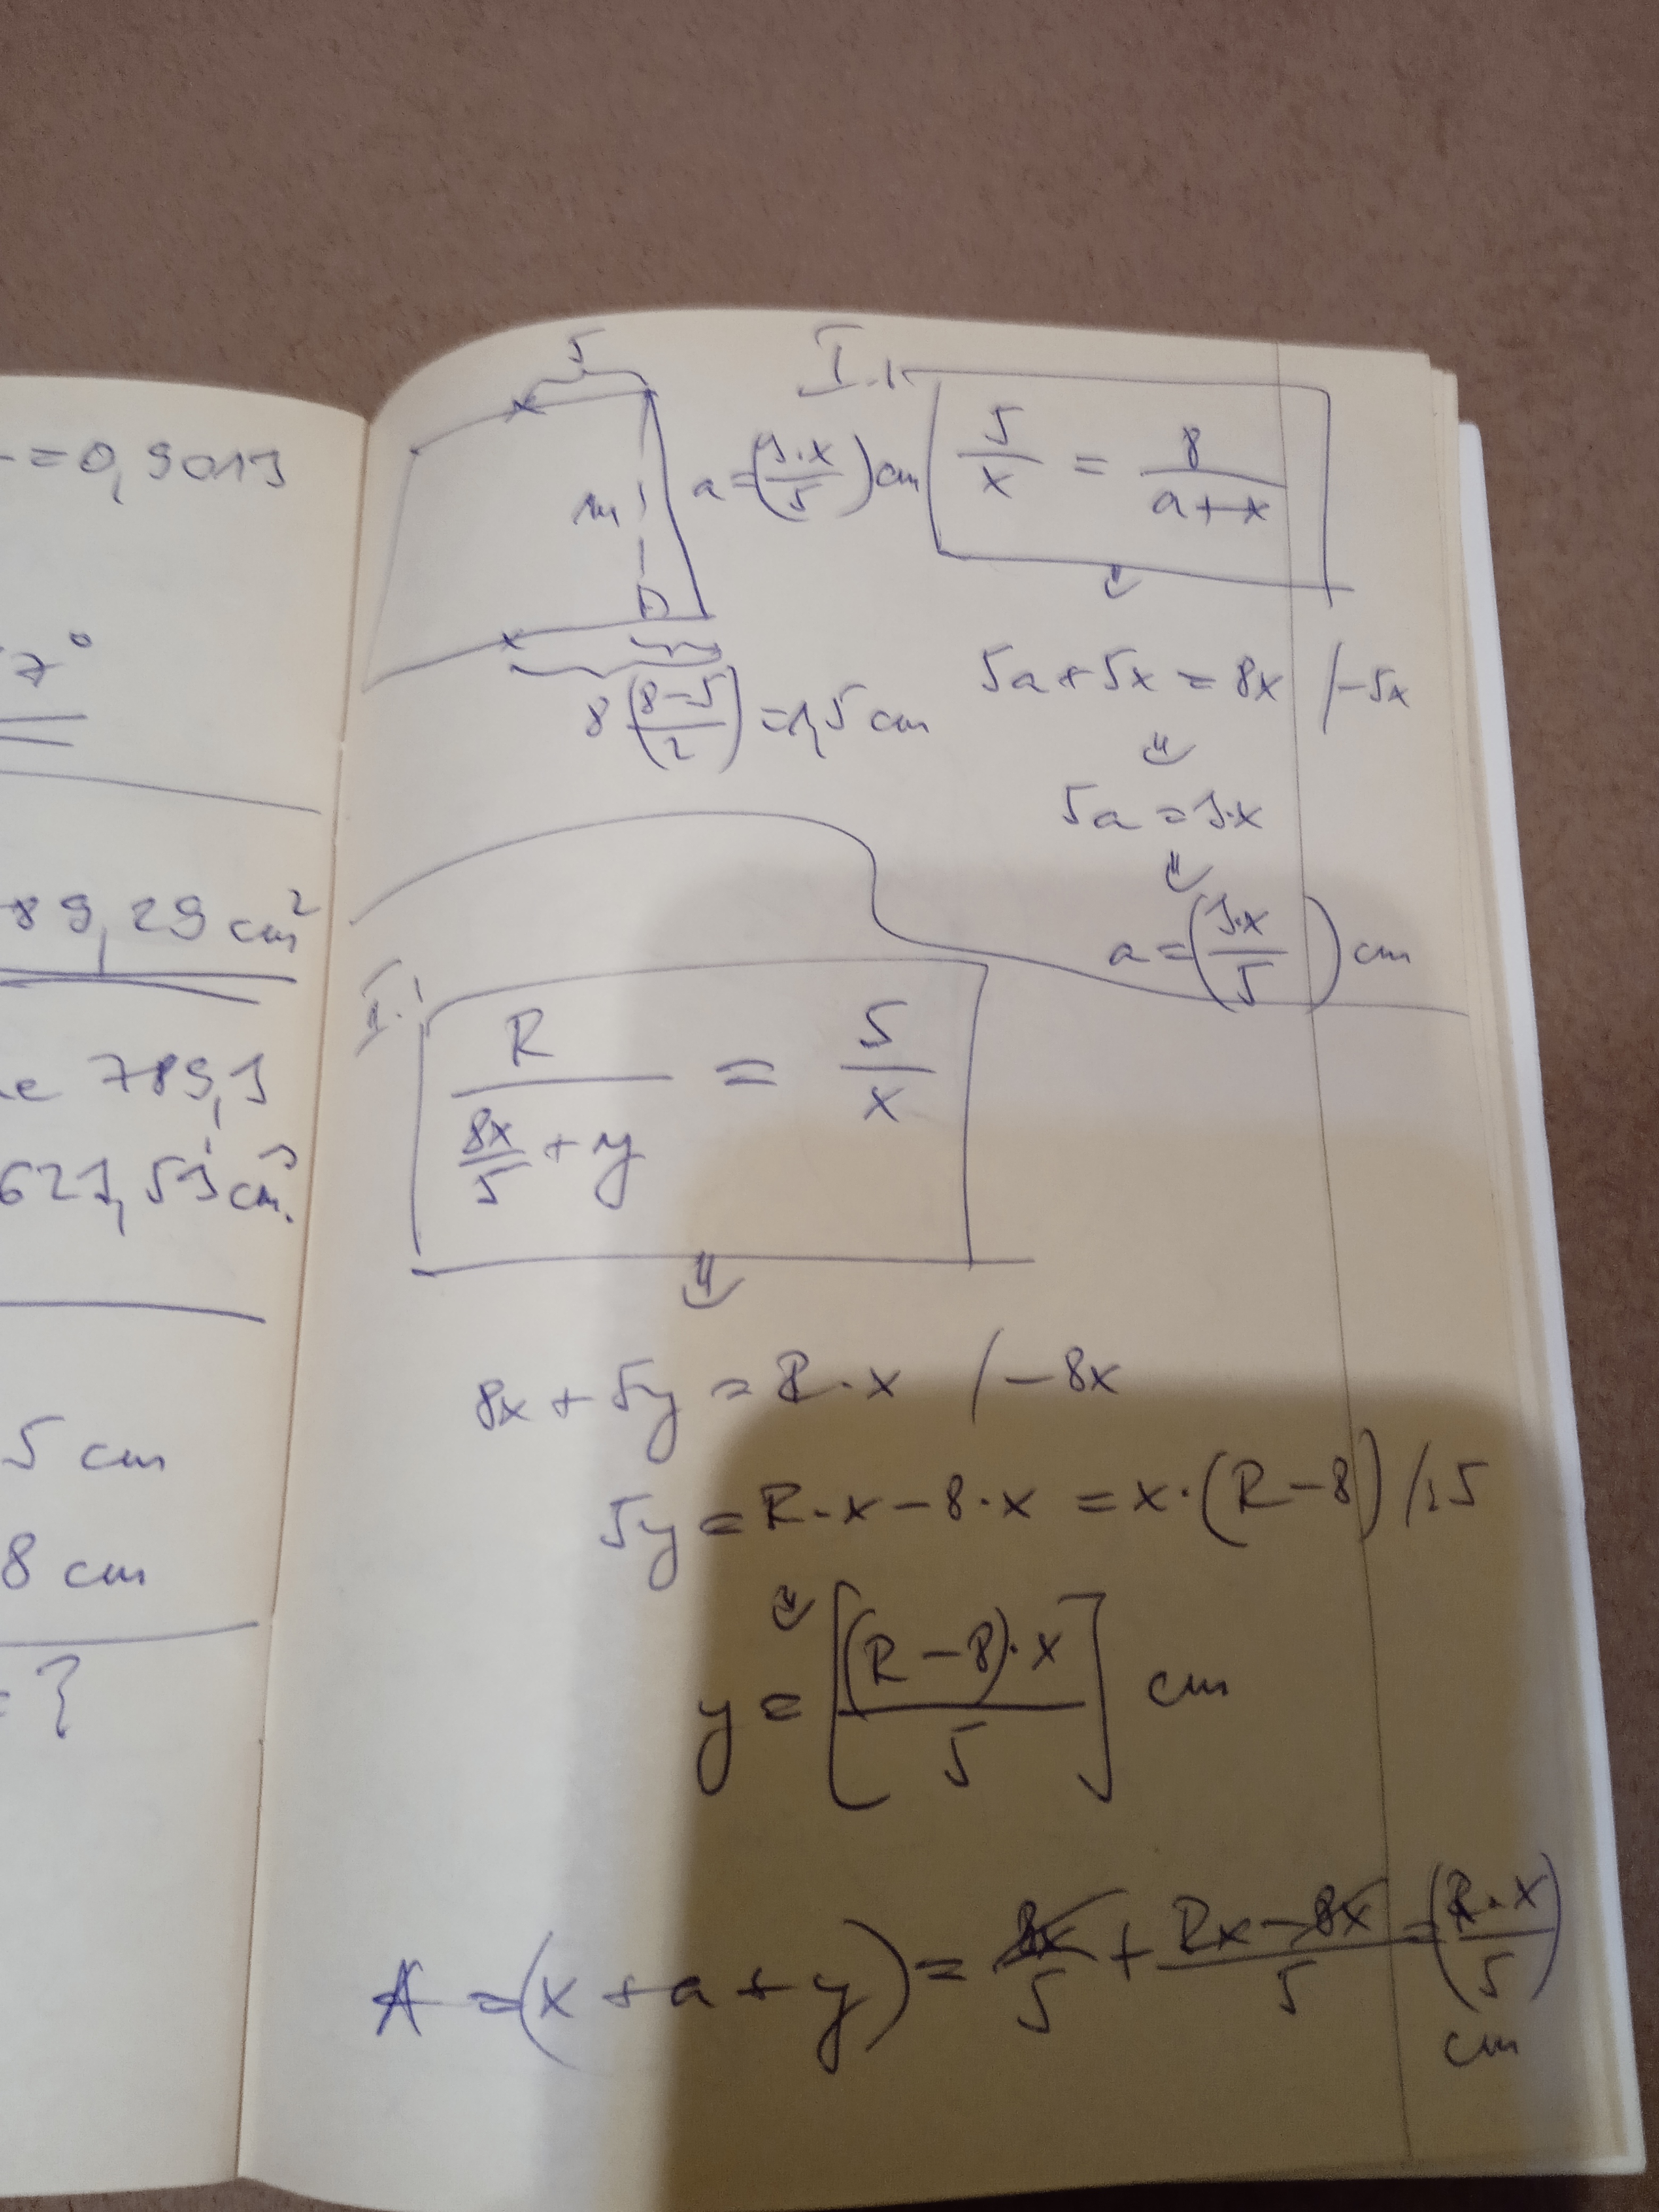 =0,9013
7°
89,29 cm²
789,3
627,53 cm³.
5 cm
8 cm
= ?
5
I.
m
a = (3·x/5) cm
5/x = 8/(a+x)
8 ((8-5)/2) = 1,5 cm
5a+5x = 8x /-5x
⇓
5a = 3·x
⇓
a = (3·x/5) cm
II.
R/(8x/5 + y) = 5/x
⇓
8x + 5y = R·x /-8x
5y = R·x - 8·x = x·(R-8) /:5
⇓
y = [(R-8)·x/5] cm
A = (x + a + y) = 8x/5 + (Rx-8x)/5 = (R·x/5)
cm